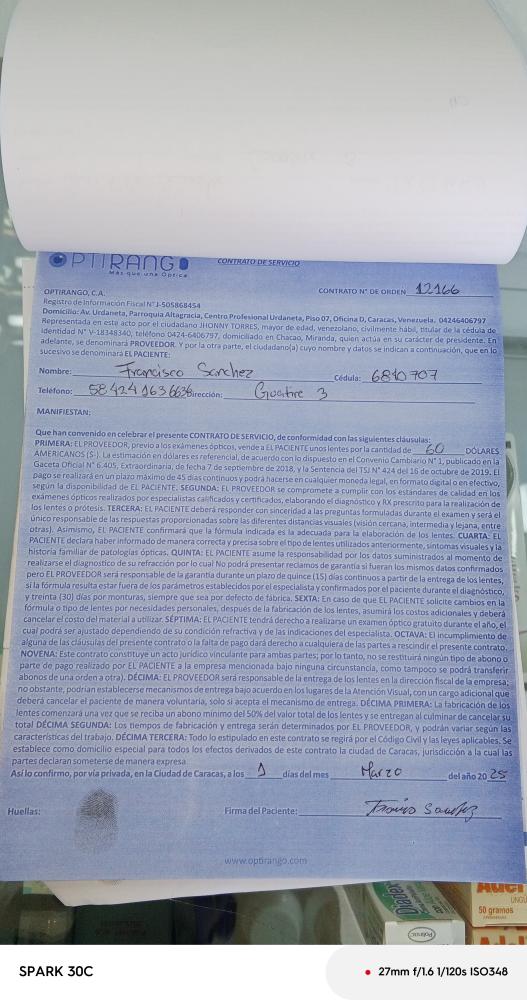 OPTIRANGO
Más que una Óptica
CONTRATO DE SERVICIO
CONTRATO N° DE ORDEN 12166
OPTIRANGO, C.A.
Registro de Información Fiscal N° J-505868454
Domicilio: Av. Urdaneta, Parroquia Altagracia, Centro Profesional Urdaneta, Piso 07, Oficina D, Caracas, Venezuela. 04246406797
Representada en este acto por el ciudadano JHONNY TORRES, mayor de edad, venezolano, civilmente hábil, titular de la cédula de
identidad N° V-18348340, teléfono 0424-6406797, domiciliado en Chacao, Miranda, quien actúa en su carácter de presidente. En
adelante, se denominará PROVEEDOR. Y por la otra parte, el ciudadano(a) cuyo nombre y datos se indican a continuación, que en lo
sucesivo se denominará EL PACIENTE:
Nombre: Francisco Sanchez Cédula: 6810707
Teléfono: 58424 163 6636 Dirección: Guatire 3
MANIFIESTAN:
Que han convenido en celebrar el presente CONTRATO DE SERVICIO, de conformidad con las siguientes cláusulas:
PRIMERA: EL PROVEEDOR, previo a los exámenes ópticos, vende a EL PACIENTE unos lentes por la cantidad de 60 DÓLARES
AMERICANOS ($-). La estimación en dólares es referencial, de acuerdo con lo dispuesto en el Convenio Cambiario N° 1, publicado en la
Gaceta Oficial N° 6.405, Extraordinaria, de fecha 7 de septiembre de 2018, y la Sentencia del TSJ N° 424 del 16 de octubre de 2019. El
pago se realizará en un plazo máximo de 45 días continuos y podrá hacerse en cualquier moneda legal, en formato digital o en efectivo,
según la disponibilidad de EL PACIENTE. SEGUNDA: EL PROVEEDOR se compromete a cumplir con los estándares de calidad en los
exámenes ópticos realizados por especialistas calificados y certificados, elaborando el diagnóstico y RX prescrito para la realización de
los lentes o prótesis. TERCERA: EL PACIENTE deberá responder con sinceridad a las preguntas formuladas durante el examen y será el
único responsable de las respuestas proporcionadas sobre las diferentes distancias visuales (visión cercana, intermedia y lejana, entre
otras). Asimismo, EL PACIENTE confirmará que la fórmula indicada es la adecuada para la elaboración de los lentes. CUARTA: EL
PACIENTE declara haber informado de manera correcta y precisa sobre el tipo de lentes utilizados anteriormente, síntomas visuales y la
historia familiar de patologías ópticas. QUINTA: EL PACIENTE asume la responsabilidad por los datos suministrados al momento de
realizarse el diagnostico de su refracción por lo cual No podrá presentar reclamos de garantía si fueran los mismos datos confirmados
pero EL PROVEEDOR será responsable de la garantía durante un plazo de quince (15) días continuos a partir de la entrega de los lentes,
si la fórmula resulta estar fuera de los parámetros establecidos por el especialista y confirmados por el paciente durante el diagnóstico,
y treinta (30) días por monturas, siempre que sea por defecto de fábrica. SEXTA: En caso de que EL PACIENTE solicite cambios en la
fórmula o tipo de lentes por necesidades personales, después de la fabricación de los lentes, asumirá los costos adicionales y deberá
cancelar el costo del material a utilizar. SÉPTIMA: EL PACIENTE tendrá derecho a realizarse un examen óptico gratuito durante el año, el
cual podrá ser ajustado dependiendo de su condición refractiva y de las indicaciones del especialista. OCTAVA: El incumplimiento de
alguna de las cláusulas del presente contrato o la falta de pago dará derecho a cualquiera de las partes a rescindir el presente contrato.
NOVENA: Este contrato constituye un acto jurídico vinculante para ambas partes; por lo tanto, no se restituirá ningún tipo de abono o
parte de pago realizado por EL PACIENTE a la empresa mencionada bajo ninguna circunstancia, como tampoco se podrá transferir
abonos de una orden a otra). DÉCIMA: EL PROVEEDOR será responsable de la entrega de los lentes en la dirección fiscal de la empresa;
no obstante, podrían establecerse mecanismos de entrega bajo acuerdo en los lugares de la Atención Visual, con un cargo adicional que
deberá cancelar el paciente de manera voluntaria, solo si acepta el mecanismo de entrega. DÉCIMA PRIMERA: La fabricación de los
lentes comenzará una vez que se reciba un abono mínimo del 50% del valor total de los lentes y se entregan al culminar de cancelar su
total DÉCIMA SEGUNDA: Los tiempos de fabricación y entrega serán determinados por EL PROVEEDOR, y podrán variar según las
características del trabajo. DÉCIMA TERCERA: Todo lo estipulado en este contrato se regirá por el Código Civil y las leyes aplicables. Se
establece como domicilio especial para todos los efectos derivados de este contrato la ciudad de Caracas, jurisdicción a la cual las
partes declaran someterse de manera expresa.
Así lo confirmo, por vía privada, en la Ciudad de Caracas, a los 1 días del mes Marzo del año 2025
Huellas: Firma del Paciente: Francisco Sanchez
www.optirango.com
50 gramos
SPARK 30C
27mm f/1.6 1/120s ISO348